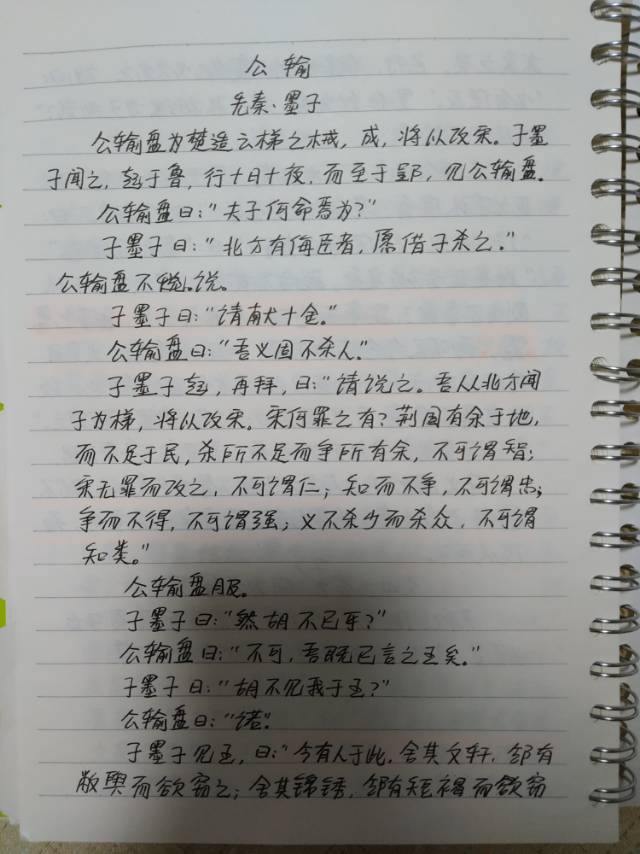 公输
先秦·墨子
公输盘为楚造云梯之械，成，将以攻宋。子墨
子闻之，起于鲁，行十日十夜，而至于郢，见公输盘。
公输盘曰：“夫子何命焉为？”
子墨子曰：“北方有侮臣者，愿借子杀之。”
公输盘不悦。说。
子墨子曰：“请献十金。”
公输盘曰：“吾义固不杀人。”
子墨子起，再拜，曰：“请说之。吾从北方闻
子为梯，将以攻宋。宋何罪之有？荆国有余于地，
而不足于民，杀所不足而争所有余，不可谓智；
宋无罪而攻之，不可谓仁；知而不争，不可谓忠；
争而不得，不可谓强；义不杀少而杀众，不可谓
知类。”
公输盘服。
子墨子曰：“然胡不已乎？”
公输盘曰：“不可，吾既已言之王矣。”
子墨子曰：“胡不见我于王？”
公输盘曰：“诺”。
子墨子见王，曰：“今有人于此，舍其文轩，邻有
敝舆而欲窃之；舍其锦绣，邻有短褐而欲窃